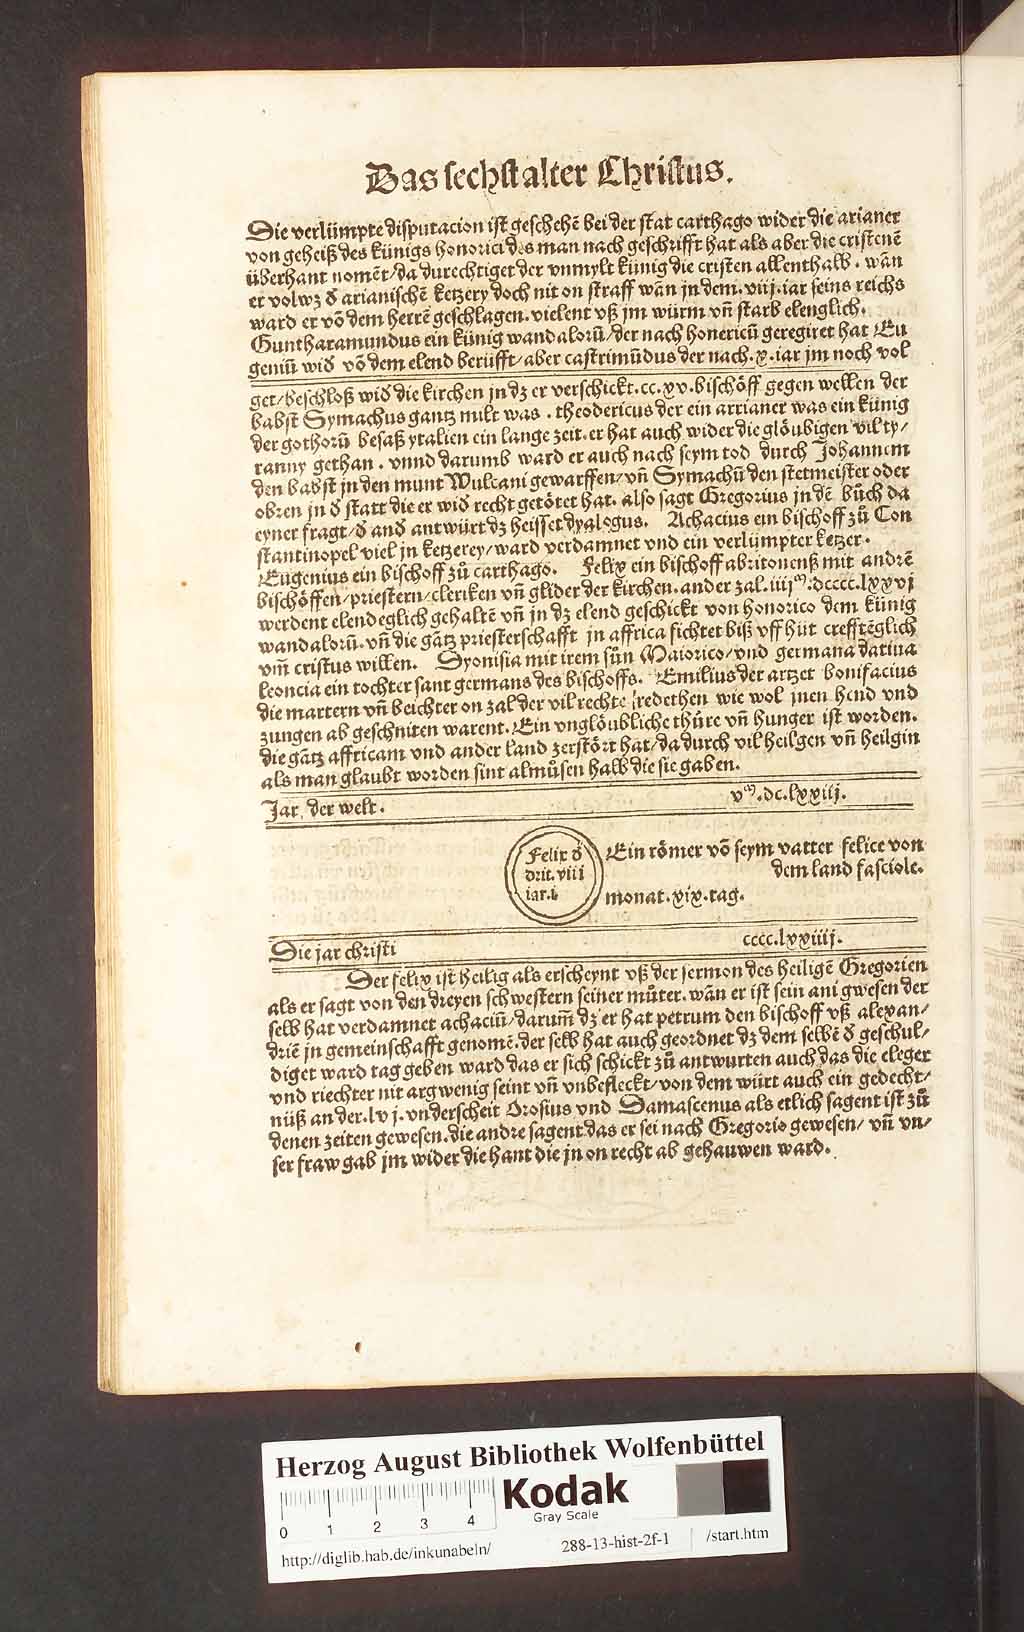 Das sechst alter Christus.
Die verlümpte disputacion ist geschehē bei der stat carthago wider die arianer
von geheiß des künigs honorici des man nach geschrifft hat als aber die cristenē
überhant nomēt/da durechtiget der vnmylt künig die cristen allenthalb. wān
er volwz d̕ arianischē ketzery doch nit on straff wān jn dem.viij.iar seins reichs
ward er vō dem herrē geschlagen.vielent vß jm würm vn̄ starb elenglich.
Guntharamundus ein künig wandalorū/der nach honericū geregiret hat Eu
geniū wid̕ vō dem elend berüfft/aber castrimūdus der nach.x.iar jm noch vol
get/beschloß wid̕ die kirchen jn dz er verschickt.cc.xv.bischöff gegen wellen der
babst Symachus gantz milt was. theodericus der ein arrianer was ein künig
der gothorū besaß ytalien ein lange zeit.er hat auch wider die glöubigen vil ty/
ranny gethan. vnnd darumb ward er auch nach seym tod durch Johannem
den babst jn den munt Wulcani gewarffen/vn̄ Symachū den stetmeister oder
obren jn d̕ statt die er wid̕ recht getötet hat. also sagt Gregorius jn dē bůch da
eyner fragt/d̕ and̕ antwürt dz heisset dyalogus. Achacius ein bischoff zů Con
stantinopel viel jn ketzerey/ward verdamnet vnd ein verlümpter ketzer.
Eugenius ein bischoff zů carthago. Felix ein bischoff abritonenß mit andrē
bischöffen/priestern/cleriken vn̄ glider der kirchen.ander zal.iiijᵐ.dcccc.lxxvj
werdent elendeglich gehaltē vn̄ jn dz elend geschickt von honorico dem künig
wandalorū.vn̄ die gātz priesterschafft jn affrica fichtet biß vff hüt crefftēglich
vm̄ cristus willen. Dyonisia mit irem sůn Maiorico/vnd germana datiua
leoncia ein tochter sant germans des bischoffs. Emilius der artzet bonifacius
die martern vn̄ beichter on zal der vil rechte redethen wie wol jnen hend vnd
zungen ab geschniten warent. Ein vnglöubliche thüre vn̄ hunger ist worden.
die gātz affricam vnd ander land zerstört hat/da durch vil heilgen vn̄ heilgin
als man glaubt worden sint almůsen halb die sie gaben.
Jar der welt. vᵐ.dc.lxxiij.
Felix d̕
drit. viii
iar.i
Ein römer vō seym vatter felice von
dem land fasciole.
monat.xix.tag.
Die jar christi cccc.lxxiiij.
Der felix ist heilig als erscheynt vß der sermon des heiligē Gregorien
als er sagt von den dreyen schwestern seiner můter.wān er ist sein ani gwesen der
selb hat verdamnet achaciū/darum̄ dz er hat petrum den bischoff vß alexan/
driē jn gemeinschafft genomē.der selb hat auch geordnet dz dem selbē d̕ geschul/
diget ward tag geben ward das er sich schickt zů antwurten auch das die eleger
vnd riechter nit argwenig seint vn̄ vnbefleckt/von dem würt auch ein gedecht/
nüß an der.lvj.vnderscheit Orosius vnd Damascenus als etlich sagent ist zů
denen zeiten gewesen.die andre sagent das er sei nach Gregorio gewesen/ vn̄ vn/
ser fraw gab jm wider die hant die jn on recht ab gehauwen ward.
Herzog August Bibliothek Wolfenbüttel
Kodak
Gray Scale
0 1 2 3 4
http://diglib.hab.de/inkunabeln/ 288-13-hist-2f-1 /start.htm